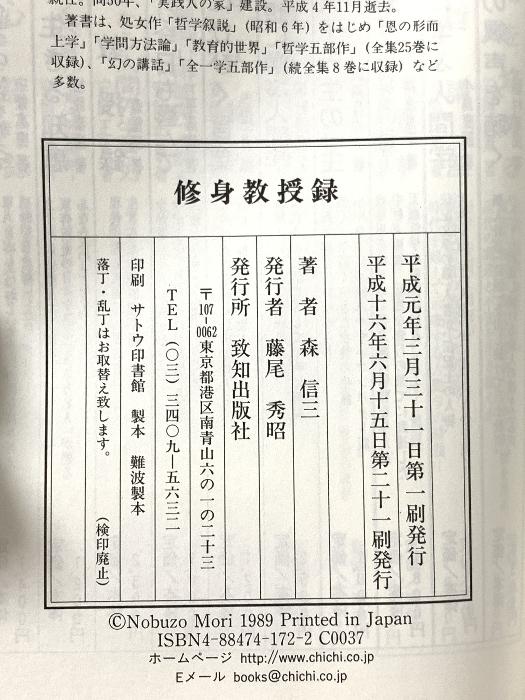 就任。同50年、「実践人の家」建設。平成4年11月逝去。
著書は、処女作「哲学叙説」(昭和6年)をはじめ「恩の形而
上学」「学問方法論」「教育的世界」「哲学五部作」(全集25巻に
収録)、「幻の講話」「全一学五部作」(続全集8巻に収録)など
多数。
修身教授録
平成元年三月三十一日第一刷発行
平成十六年六月十五日第二十一刷発行
著者 森 信三
発行者 藤尾 秀昭
発行所 致知出版社
〒107-0062東京都港区南青山六の一の二十三
TEL(〇三)三四〇九―五六三二
印刷 サトウ印書館 製本 難波製本
落丁・乱丁はお取替え致します。 (検印廃止)
©Nobuzo Mori 1989 Printed in Japan
ISBN4-88474-172-2 C0037
ホームページ http://www.chichi.co.jp
Eメール books@chichi.co.jp